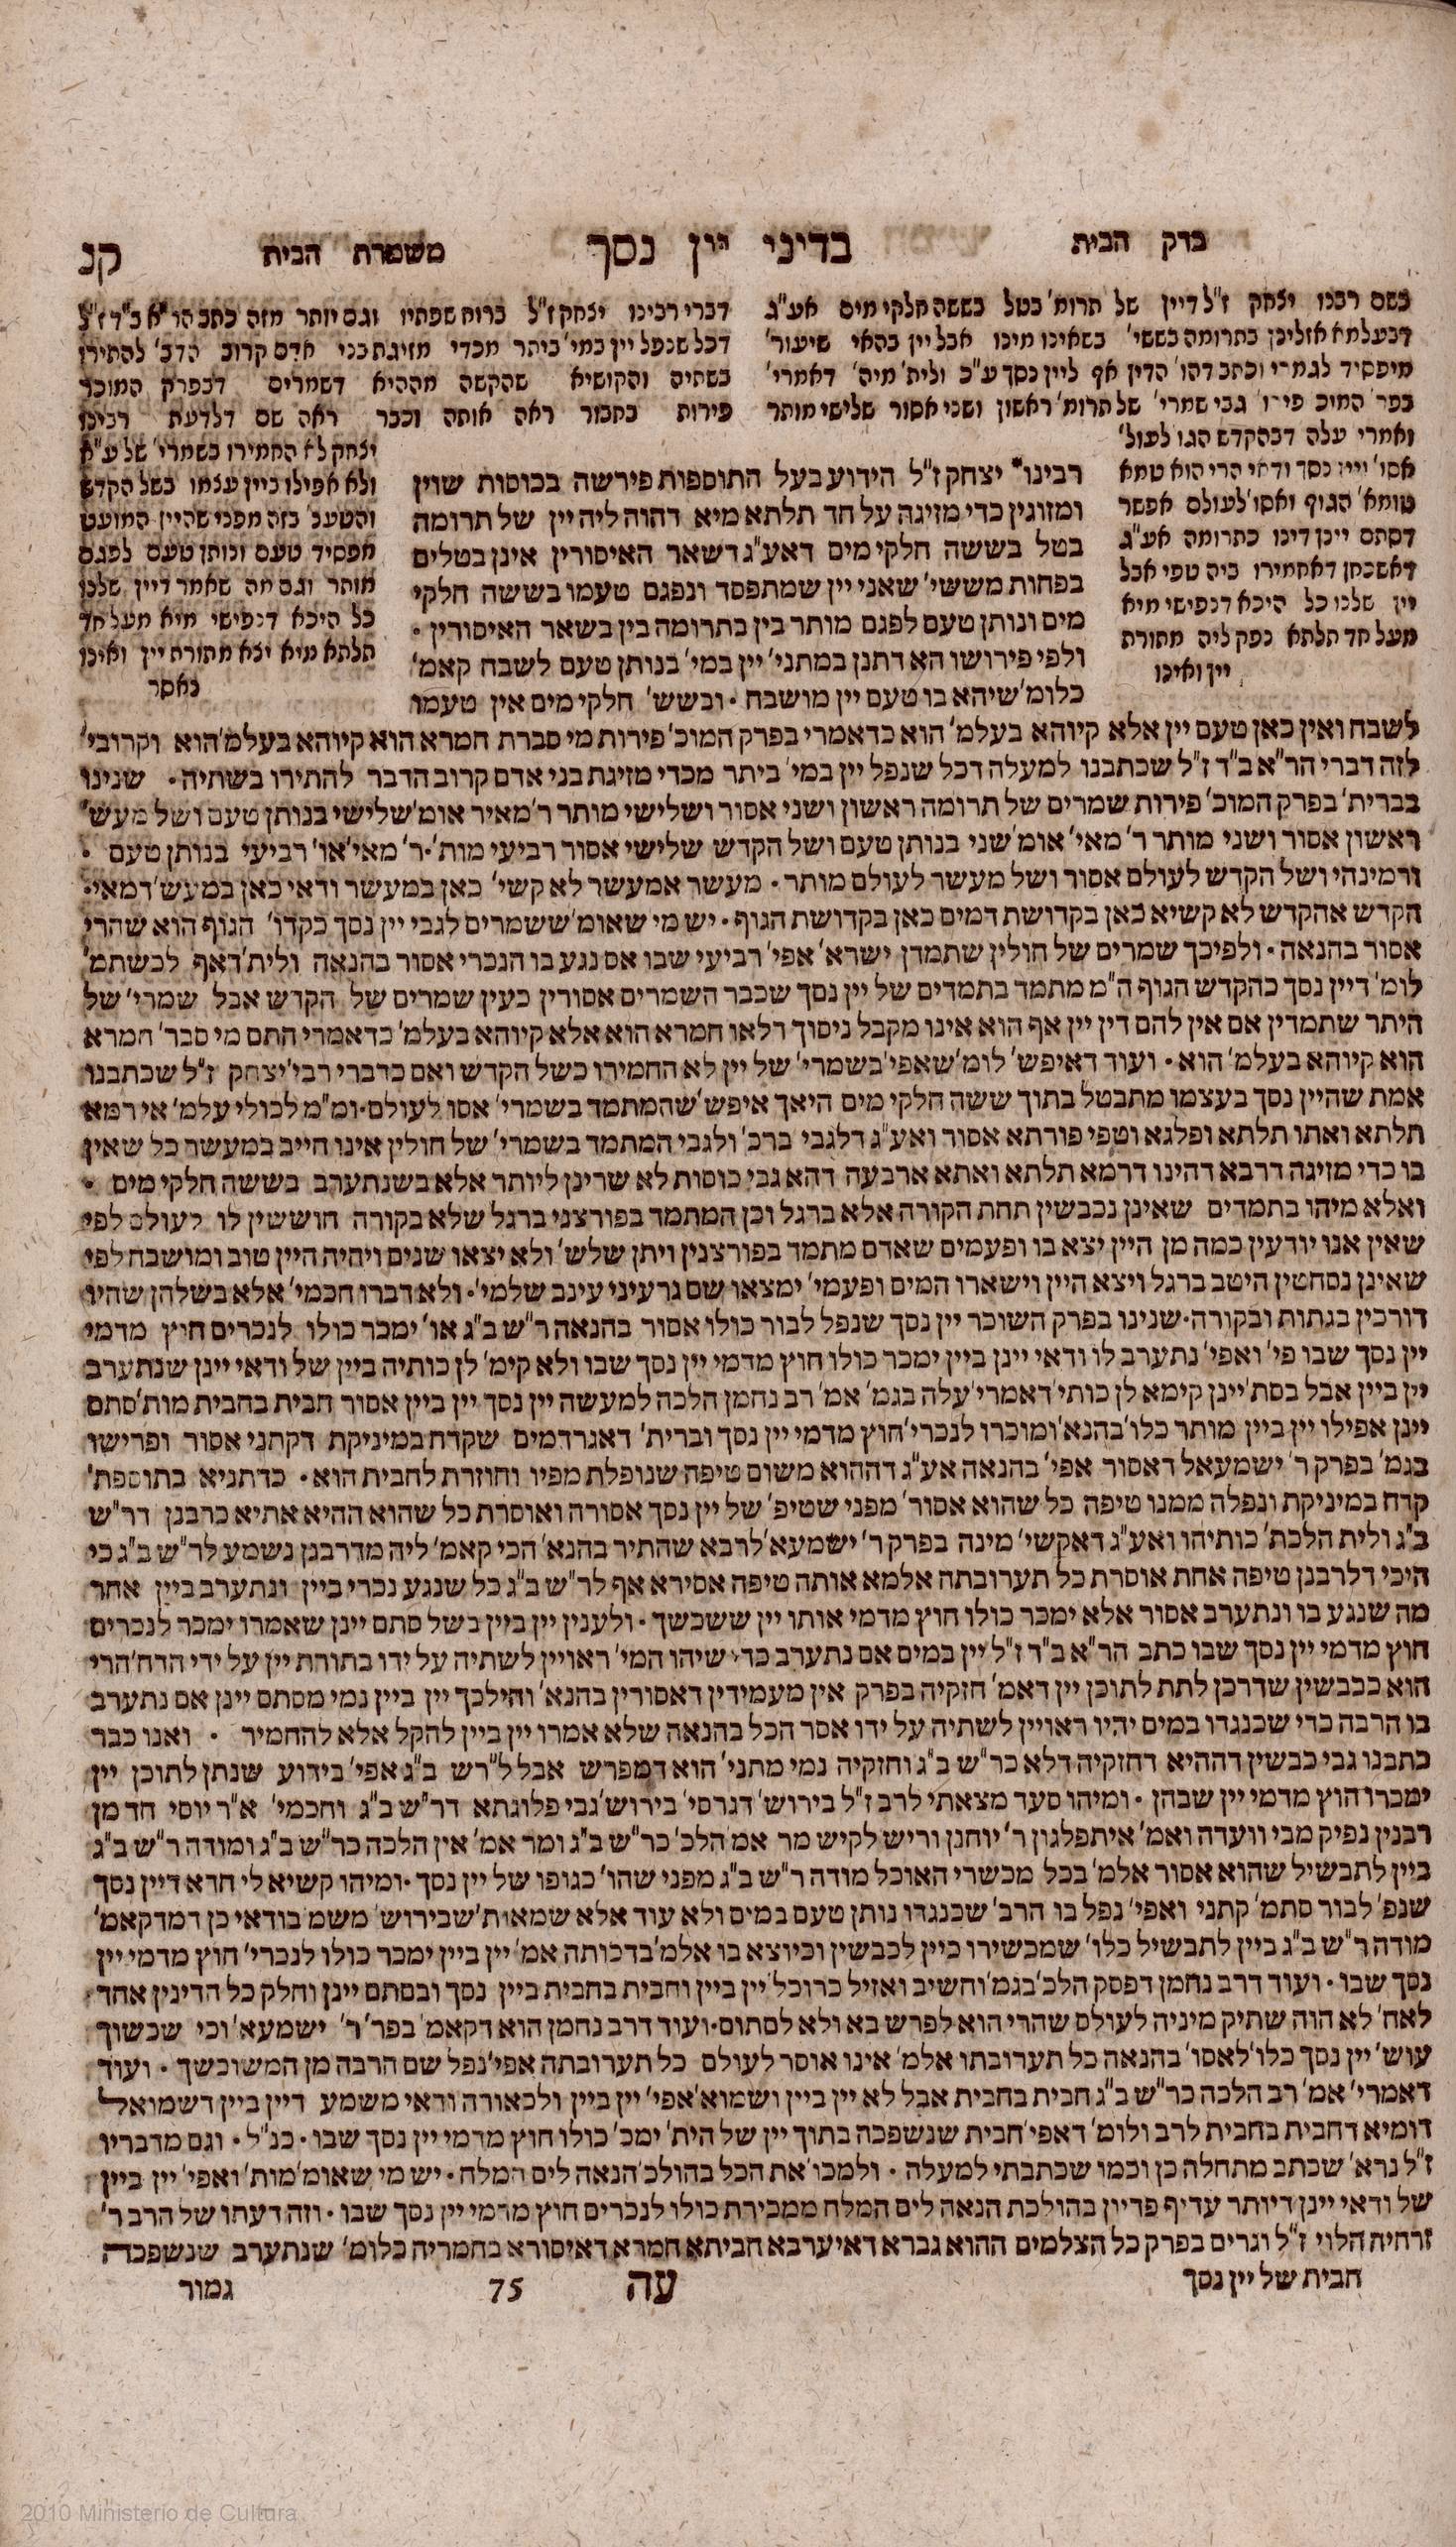 בדק הבית
בדיני יין נסך
משמרת הבית
קנ
בשם רבנו יצחק ז"ל דיין של תרומ' בטל בששה חלקי מים אע"ג
דבעלמא אזלינן בתרומה בששי' בשאינו מינו אבל יין בהאי שיעור'
מיפסיד לגמרי וכתב דהו' הדין אף ליין נסך ע"כ ולית' מיה' דאמרי'
בפר' המוכ' פירו' גבי שמרי' של תרומ' ראשון ושני אסור שלישי מותר
ואמרי' עלה דבהקדש הגו' לעול'
אסו' ויין נסך ודאי הרי הוא טמא
טומא' הגוף ואסו' לעולם אפשר
דסתם יינן דינו כתרומה אע"ג
דאשכחן דאחמירו ביה טפי אבל
יין שלנו כל היכא דנפישי מיא
מעל חד תלתא נפק ליה מתורת
יין ואינו
דברי רבינו יצחק ז"ל ברוח שפתיו וגם יותר מזה כתב הר"א ב"ד ז"ל
דכל שנפל יין במי' ביתר מכדי מזיגת בני אדם קרוב הדב' להתירו
בשתיה והקושיא שהקשה מההיא דשמרים דבפרק המוכר
פירות כתבור ראה אותה וכבר ראה שם דלדעת רבינו
יצחק לא החמירו בשמרי' של ע"א
ולא אפילו ביין עצמו כשל הקדש
והטעם בזה מפני שהיין המועט
מפסיד טעם ונותן טעם לפגם
מותר וגם מה שאמר דיין שלנו
כל היכא דנפישי מיא מעל חד
תלתא מיא יצא מתורת יין ואינו
נאסר
רבינו* יצחק ז"ל הידוע בעל התוספות פירשה בכוסות שוין
ומזוגין כדי מזיגה על חד תלתא מיא דהוה ליה יין של תרומה
בטל בששה חלקי מים דאע"ג דשאר האיסורין אינן בטלים
בפחות מששי' שאני יין שמתפסד ונפגם טעמו בששה חלקי
מים ונותן טעם לפגם מותר בין בתרומה בין בשאר האיסורין ·
ולפי פירושו הא דתנן במתני' יין במי' בנותן טעם לשבח קאמ'
כלומ' שיהא בו טעם יין מושבח · ובשש' חלקי מים אין טעמו
לשבח ואין כאן טעם יין אלא קיוהא בעלמ' הוא כדאמרי' בפרק המוכ' פירות מי סברת חמרא הוא קיוהא בעלמ' הוא וקרובי'
לזה דברי הר"א ב"ד ז"ל שכתבנו למעלה דכל שנפל יין במי' ביתר מכדי מזיגת בני אדם קרוב הדבר להתירו בשתיה · שנינו
בברית' בפרק המוכ' פירות שמרים של תרומה ראשון ושני אסור ושלישי מותר ר' מאיר אומ' שלישי בנותן טעם ושל מעש'
ראשון אסור ושני מותר ר' מאי' אומ' שני בנותן טעם ושל הקדש שלישי אסור רביעי מות' · ר' מאי' או' רביעי בנותן טעם ·
ורמינהי ושל הקדש לעולם אסור ושל מעשר לעולם מותר · מעשר אמעשר לא קשי' כאן במעשר ודאי כאן במעש' דמאי ·
הקדש אהקדש לא קשיא כאן בקדושת דמים כאן בקדושת הגוף · יש מי שאומ' ששמרים לגבי יין נסך כקדו' הגוף הוא שהרי
אסור בהנאה · ולפיכך שמרים של חולין שתמדן ישרא' אפי' רביעי שבו אם נגע בו הנכרי אסור בהנאה ולית' דאף לכשתמ'
לומ' דיין נסך כהקדש הגוף ה"מ מתמד בתמדים של יין נסך שכבר השמרים אסורין כעין שמרים של הקדש אבל שמרי' של
היתר שתמדין אם אין להם דין יין אף הוא אינו מקבל ניסוך דלאו חמרא הוא אלא קיוהא בעלמ' כדאמרי' התם מי סבר' חמרא
הוא קיוהא בעלמ' הוא · ועוד דאיפש' לומ' שאפי' בשמרי' של יין לא החמירו כשל הקדש ואם כדברי רבי' יצחק ז"ל שכתבנו
אמת שהיין נסך בעצמו מתבטל בתוך ששה חלקי מים היאך איפש' שהמתמד בשמרי' אסו' לעולם · ומ"מ לכולי עלמ' אי רמא
תלתא ואתו תלתא ופלגא וטפי פורתא אסור ואע"ג דלגבי ברכ' ולגבי המתמד בשמרי' של חולין אינו חייב במעשר כל שאין
בו כדי מזיגה דרבא דהינו דרמא תלתא ואתא ארבעה דהא גבי כוסות לא שרינן ליותר אלא בשנתערב בששה חלקי מים ·
ואלא מיהו בתמדים שאינן נכבשין תחת הקורה אלא ברגל וכן המתמד בפורצני ברגל שלא בקורה חוששין לו לעולם לפי
שאין אנו יודעין כמה מן היין יצא בו ופעמים שאדם מתמד בפורצנין ויתן שלש' ולא יצאו שנים ויהיה היין טוב ומושבח לפי
שאינן נסחטין היטב ברגל ויצא היין וישארו המים ופעמי' ימצאו שם גרעיני עינב שלמי' · ולא דברו חכמי' אלא בשלהן שהיו
דורכין בגתות ובקורה · שנינו בפרק השוכר יין נסך שנפל לבור כולו אסור בהנאה ר"ש ב"ג או' ימכר כולו לנכרים חוץ מדמי
יין נסך שבו פי' ואפי' נתערב לו ודאי יינן ביין ימכר כולו חוץ מדמי יין נסך שבו ולא קימ' לן כותיה ביין של ודאי יינן שנתערב
יין ביין אבל בסת' יינן קימא לן כותי' דאמרי' עלה בגמ' אמ' רב נחמן הלכה למעשה יין נסך יין ביין אסור חבית בחבית מות' סתם
יינן אפילו יין ביין מותר כלו' בהנא' ומוכרו לנכרי' חוץ מדמי יין נסך וברית' דאגרדמים שקדח במיניקת דקתני אסור ופרישו
בגמ' בפרק ר' ישמעאל דאסור אפי' בהנאה אע"ג דההוא משום טיפה שנופלת מפיו וחוזרת לחבית הוא · כדתניא בתוספת'
קדח במיניקת ונפלה ממנו טיפה כל שהוא אסור' מפני שטיפ' של יין נסך אסורה ואוסרת כל שהוא ההיא אתיא כרבנן דר"ש
ב"ג ולית הלכת' כותיהו ואע"ג דאקשי' מינה בפרק ר' ישמעא' לרבא שהתיר בהנא' הכי קאמ' ליה מדרבנן נשמע לר"ש ב"ג כי
היכי דלרבנן טיפה אחת אוסרת כל תערובתה אלמא אותה טיפה אסירא אף לר"ש ב"ג כל שנגע נכרי ביין ונתערב ביין אחר
מה שנגע בו ונתערב אסור אלא ימכר כולו חוץ מדמי אותו יין ששכשך · ולענין יין ביין בשל סתם יינן שאמרו ימכר לנכרים
חוץ מדמי יין נסך שבו כתב הר"א ב"ד ז"ל יין במים אם נתערב כדי שיהו המי' ראויין לשתיה על ידו בתורת יין על ידי הדח' הרי
הוא ככבשין שדרכן לתת לתוכן יין דאמ' חזקיה בפרק אין מעמידין דאסורין בהנא' והילכך יין ביין נמי מסתם יינן אם נתערב
בו הרבה כדי שכנגדו במים יהיו ראויין לשתיה על ידו אסר הכל בהנאה שלא אמרו יין ביין להקל אלא להחמיר · ואנו כבר
כתבנו גבי כבשין דההיא דחזקיה דלא כר"ש ב"ג וחזקיה נמי מתני' הוא דמפרש אבל ל"רש ב"ג אפי' בידוע שנתן לתוכן יין
ימכרו חוץ מדמי יין שבהן · ומיהו סעד מצאתי לרב ז"ל בירוש' דגרסי' בירוש' גבי פלוגתא דר"ש ב"ג וחכמי' א"ר יוסי חד מן
רבנין נפיק מבי וועדה ואמ' איתפלגון ר' יוחנן וריש לקיש מר אמ' הלכ' כר"ש ב"ג ומר אמ' אין הלכה כר"ש ב"ג ומודה ר"ש ב"ג
ביין לתבשיל שהוא אסור אלמ' בכל מכשרי האוכל מודה ר"ש ב"ג מפני שהו' כגופו של יין נסך · ומיהו קשיא לי חדא דיין נסך
שנפ' לבור סתמ' קתני ואפי' נפל בו הרב' שכנגדו נותן טעם במים ולא עוד אלא שמאות' שבירוש' משמ' בודאי כן דמדקאמ'
מודה ר"ש ב"ג ביין לתבשיל כלו' שמכשירו כיין לכבשין וכיוצא בו אלמ' בדכותה אמ' יין ביין ימכר כולו לנכרי' חוץ מדמי יין
נסך שבו · ועוד דרב נחמן דפסק הלכ' בגמ' וחשיב ואזיל כרוכל יין ביין וחבית בחבית ביין נסך ובסתם יינן וחלק כל הדינין אחד
לאח' לא הוה שתיק מיניה לעולם שהרי הוא לפרש בא ולא לסתום · ועוד דרב נחמן הוא דקאמ' בפר' ר' ישמעא' וכי שכשוך
עוש' יין נסך כלו' לאסו' בהנאה כל תערובתו אלמ' אינו אוסר לעולם כל תערובתה אפי' נפל שם הרבה מן המשוכשך · ועוד
דאמרי' אמ' רב הלכה כר"ש ב"ג חבית בחבית אבל לא יין ביין ושמוא' אפי' יין ביין ולכאורה ודאי משמע דיין ביין דשמואל
דומיא דחבית בחבית לרב ולומ' דאפי' חבית שנשפכה בתוך יין של הית' ימכ' כולו חוץ מדמי יין נסך שבו · כנ"ל · וגם מדבריו
ז"ל נרא' שכתב מתחלה כן וכמו שכתבתי למעלה · ולמכו' את הכל בהולכ' הנאה לים המלח · יש מי שאומ' מות' ואפי' יין ביין
של ודאי יינן דיותר עדיף פדיון בהולכת הנאה לים המלח ממכירת כולו לנכרים חוץ מדמי יין נסך שבו · וזה דעתו של הרב ר'
זרחיה הלוי ז"ל וגרים בפרק כל הצלמים ההוא גברא דאיערבא חביתא חמרא דאיסורא בחמריה כלומ' שנתערב שנשפכה
חבית של יין נסך
עה
75
גמור
2010 Ministerio de Cultura